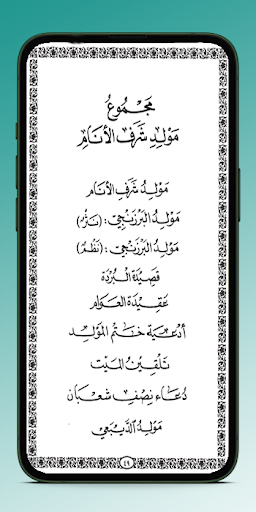 مَجْمُوعُ
مَوْلِدِ شَرَفِ الْأَنَامِ
مَوْلِدُ شَرَفِ الْأَنَامِ
مَوْلِدُ الْبَرْزَنْجِي: (نَثْرًا)
مَوْلِدُ الْبَرْزَنْجِي: (نَظْمًا)
قَصِيْدَةُ الْبُرْدَةِ
عَقِيْدَةُ الْعَوَامِ
أَدْعِيَةُ خَتْمِ الْمَوْلِدِ
تَلْقِيْنُ الْمَيِّتِ
دُعَاءُ نِصْفِ شَعْبَانَ
مَوْلِدُ الدَّيْبَعِي